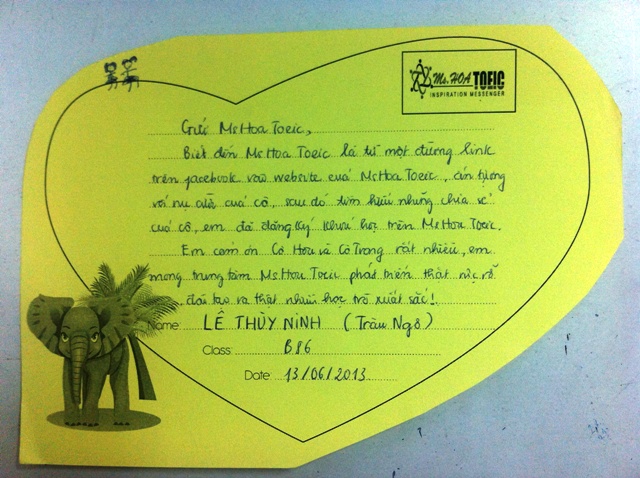 Ms.HOA TOEIC
INSPIRATION MESSENGER
Gửi Ms Hoa Toeic,
Biết đến Ms Hoa Toeic là từ một đường link
trên facebook vào website của Ms Hoa Toeic, ấn tượng
với nụ cười của cô, sau đó tìm hiểu những chia sẻ
của cô, em đã đăng ký khoá học trên Ms Hoa Toeic.
Em cảm ơn Cô Hoa và Cô Trang rất nhiều, em
mong trung tâm Ms Hoa Toeic phát triển thật rực rỡ
đào tạo ra thật nhiều học trò xuất sắc!
Name: LÊ THÙY NINH (Trâu Ngố)
Class: B86
Date: 13/06/2013